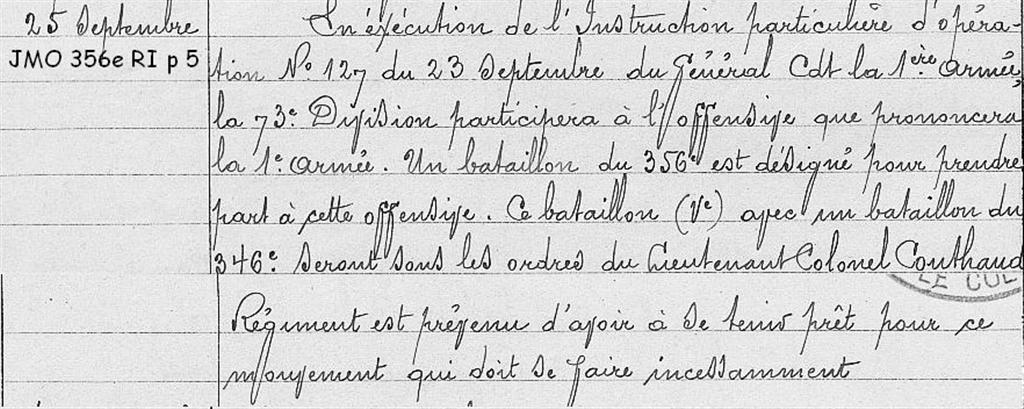 25 Septembre
JMO 356e RI p 5
En éxécution de l'Instruction particulière d'opéra-
tion No 127 du 23 Septembre du Général Cdt la 1ère armée,
la 73e Division participera à l'offensive que prononcera
la 1e armée. Un bataillon du 356e est désigné pour prendre
part à cette offensive. Ce bataillon (Ve) avec un bataillon du
346e seront sous les ordres du Lieutenant Colonel Couthaud
LE CUL
Régiment est prévenu d'avoir à se tenir prêt pour ce
mouvement qui doit se faire incessamment